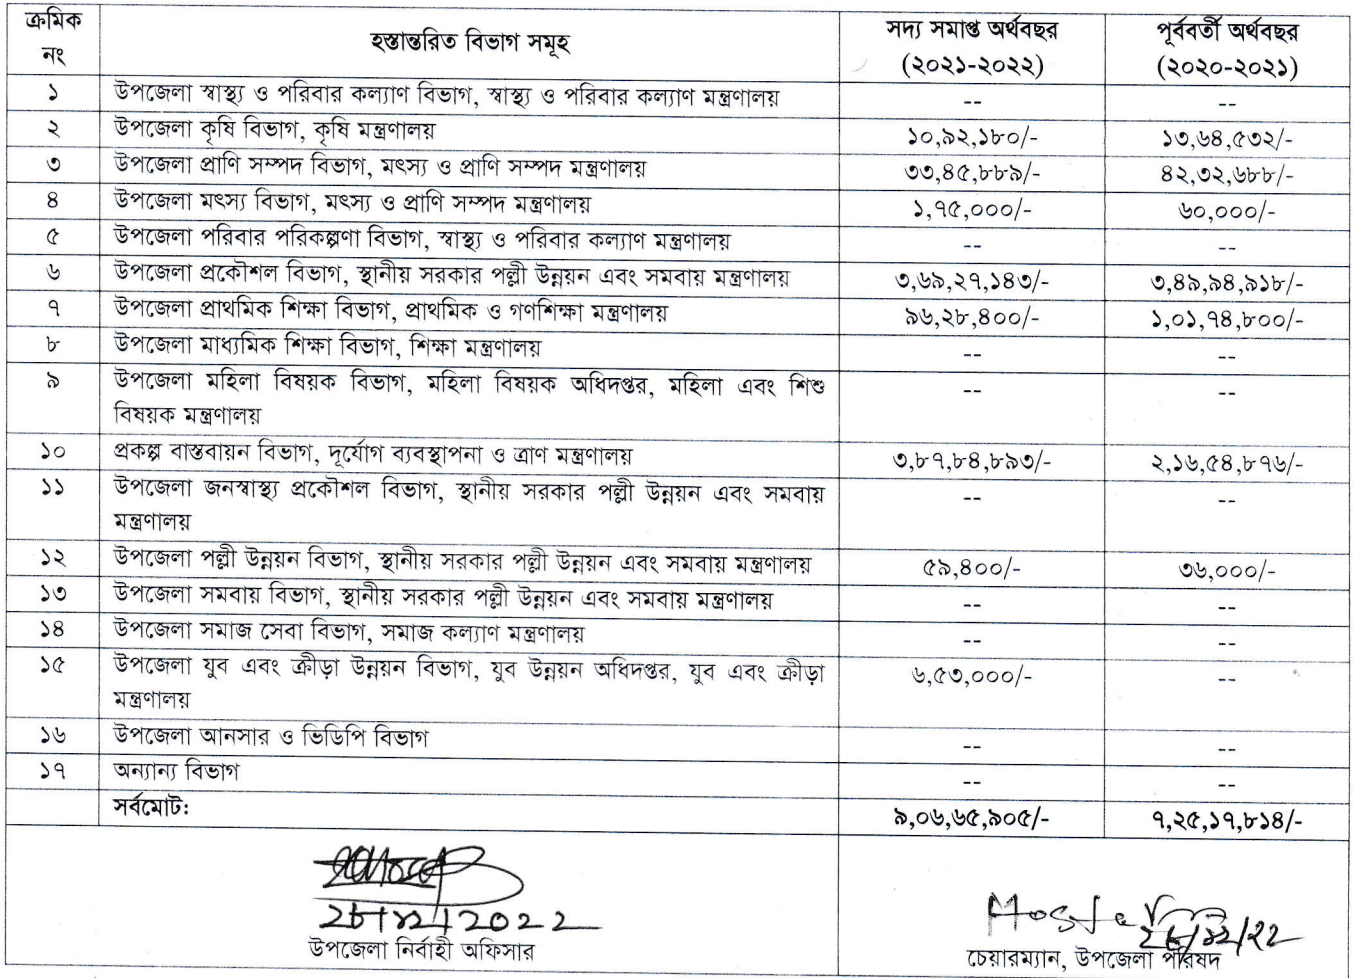 ক্রমিক নং হস্তান্তরিত বিভাগ সমূহ সদ্য সমাপ্ত অর্থবছর (২০২১-২০২২) পূর্ববর্তী অর্থবছর (২০২০-২০২১)
১ উপজেলা স্বাস্থ্য ও পরিবার কল্যাণ বিভাগ, স্বাস্থ্য ও পরিবার কল্যাণ মন্ত্রণালয় -- --
২ উপজেলা কৃষি বিভাগ, কৃষি মন্ত্রণালয় ১০,৯২,১৮০/- ১৩,৬৪,৫৩২/-
৩ উপজেলা প্রাণি সম্পদ বিভাগ, মৎস্য ও প্রাণি সম্পদ মন্ত্রণালয় ৩৩,৪৫,৮৮৯/- ৪২,৩২,৬৮৮/-
৪ উপজেলা মৎস্য বিভাগ, মৎস্য ও প্রাণি সম্পদ মন্ত্রণালয় ১,৭৫,০০০/- ৬০,০০০/-
৫ উপজেলা পরিবার পরিকল্পণা বিভাগ, স্বাস্থ্য ও পরিবার কল্যাণ মন্ত্রণালয় -- --
৬ উপজেলা প্রকৌশল বিভাগ, স্থানীয় সরকার পল্লী উন্নয়ন এবং সমবায় মন্ত্রণালয় ৩,৬৯,২৭,১৪৩/- ৩,৪৯,৯৪,৯১৮/-
৭ উপজেলা প্রাথমিক শিক্ষা বিভাগ, প্রাথমিক ও গণশিক্ষা মন্ত্রণালয় ৯৬,২৮,৪০০/- ১,০১,৭৪,৮০০/-
৮ উপজেলা মাধ্যমিক শিক্ষা বিভাগ, শিক্ষা মন্ত্রণালয় -- --
৯ উপজেলা মহিলা বিষয়ক বিভাগ, মহিলা বিষয়ক অধিদপ্তর, মহিলা এবং শিশু -- --
বিষয়ক মন্ত্রণালয়
১০ প্রকল্প বাস্তবায়ন বিভাগ, দূর্যোগ ব্যবস্থাপনা ও ত্রাণ মন্ত্রণালয় ৩,৮৭,৮৪,৮৯৩/- ২,১৬,৫৪,৮৭৬/-
১১ উপজেলা জনস্বাস্থ্য প্রকৌশল বিভাগ, স্থানীয় সরকার পল্লী উন্নয়ন এবং সমবায় -- --
মন্ত্রণালয়
১২ উপজেলা পল্লী উন্নয়ন বিভাগ, স্থানীয় সরকার পল্লী উন্নয়ন এবং সমবায় মন্ত্রণালয় ৫৯,৪০০/- ৩৬,০০০/-
১৩ উপজেলা সমবায় বিভাগ, স্থানীয় সরকার পল্লী উন্নয়ন এবং সমবায় মন্ত্রণালয় -- --
১৪ উপজেলা সমাজ সেবা বিভাগ, সমাজ কল্যাণ মন্ত্রণালয় -- --
১৫ উপজেলা যুব এবং ক্রীড়া উন্নয়ন বিভাগ, যুব উন্নয়ন অধিদপ্তর, যুব এবং ক্রীড়া ৬,৫৩,০০০/- --
মন্ত্রণালয়
১৬ উপজেলা আনসার ও ভিডিপি বিভাগ -- --
১৭ অন্যান্য বিভাগ -- --
সর্বমোট: ৯,০৬,৬৫,৯০৫/- ৭,২৫,১৭,৮১৪/-
উপজেলা নির্বাহী অফিসার
চেয়ারম্যান, উপজেলা পরিষদ